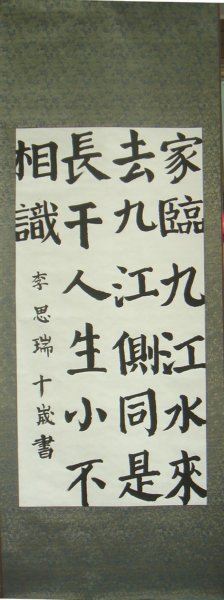 家臨九江水來
去九江側同是
長干人生小不
相識
李思瑞十歲書